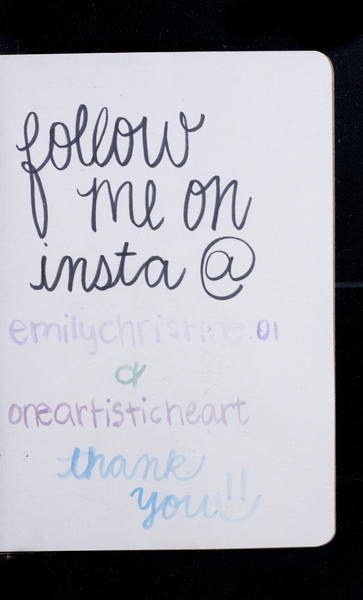 follow
me on
insta @
emilychristine.01
&
oneartisticheart
thank
you!!